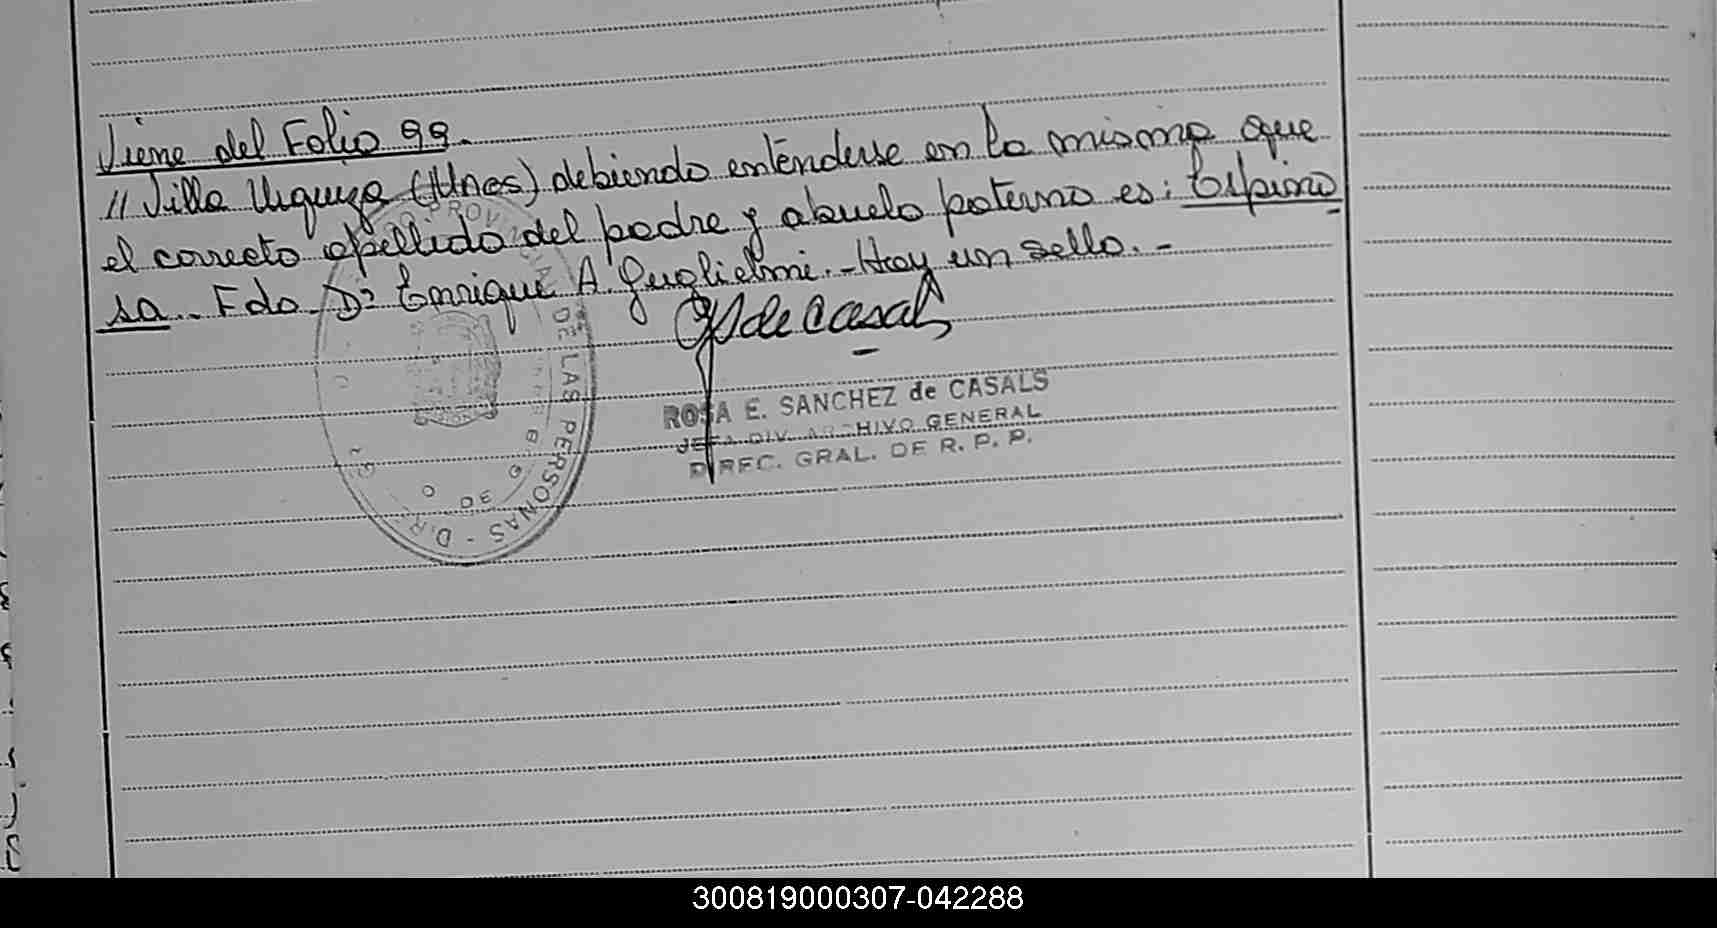 Viene del Folio 99.
// Villa Urquiza (Unas) debiendo entenderse en la misma que
el correcto apellido del padre y abuelo paterno es: Espino
sa.. Fdo. Dr. Enrique A. Guglielmi.- Hay un sello.-
RS de Casals
ROSA E. SANCHEZ de CASALS
JEFA DIV. ARCHIVO GENERAL
DIREC. GRAL. DE R. P. P.
PROVINCIAL DE LAS PERSONAS - D.R.
300819000307-042288